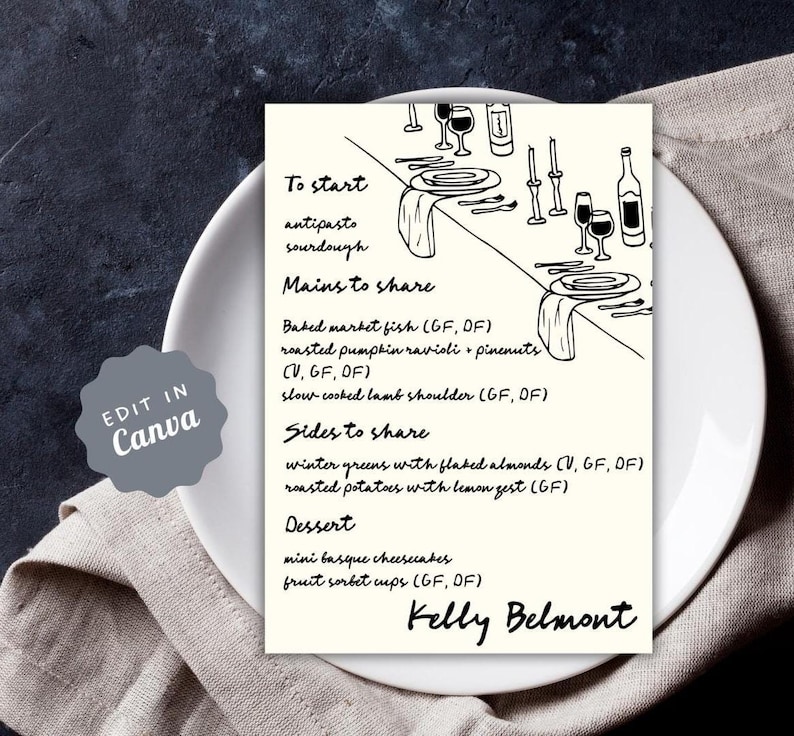 To start
antipasto
sourdough
Mains to share
Baked market fish (GF, DF)
roasted pumpkin ravioli + pinenuts
(V, GF, DF)
slow cooked lamb shoulder (GF, DF)
Sides to share
winter greens with flaked almonds (V, GF, DF)
roasted potatoes with lemon zest (GF)
Dessert
mini basque cheesecakes
fruit sorbet cups (GF, DF)
Kelly Belmont
EDIT IN
Canva